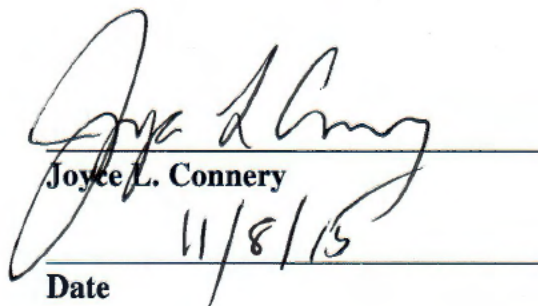 Joyce L Connery
Joyce L. Connery
11/8/15
Date